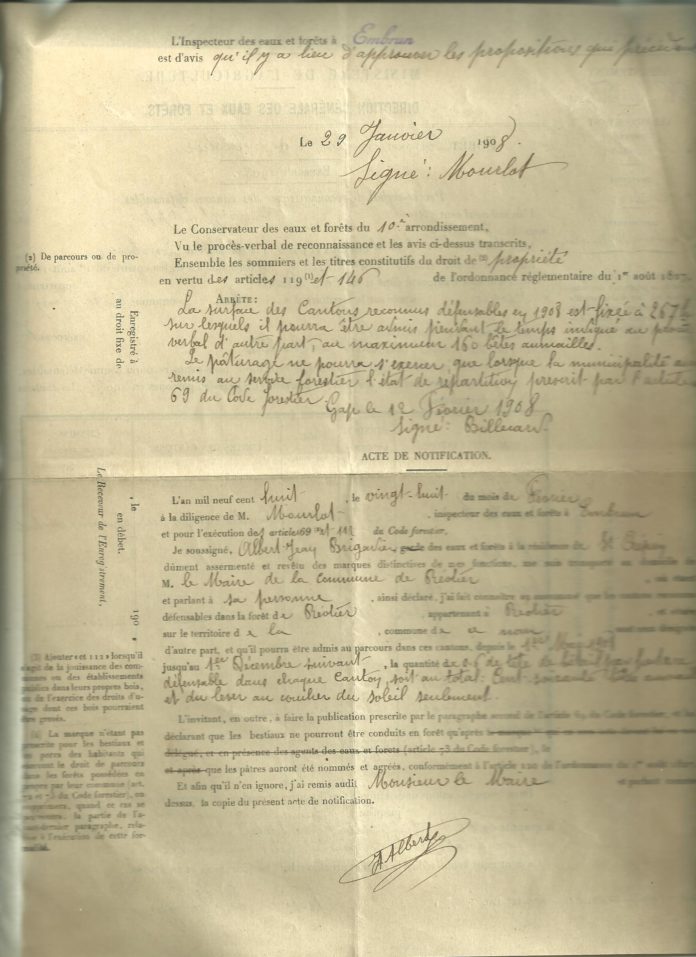 L'Inspecteur des eaux et forêts à Embrun
est d'avis qu'il y a lieu d'approuver les propositions que
Le 29 Janvier 1908.
Signé: Mourlot
Le Conservateur des eaux et forêts du 10e arrondissement,
Vu le procès-verbal de reconnaissance et les avis ci-dessus transcrits,
(2) De parcours ou de pro-
priété.
Ensemble les sommiers et les titres constitutifs du droit de (2) propriété
en vertu des articles 119 (1) et 146 de l'ordonnance réglementaire du 1er août
ARRÊTE:
La surface des Cantons reconnus défensables en 1908 est fixée à 267h
sur lesquels il pourra être admis pendant le temps indiqué au
verbal d'autre part, au maximum 160 bêtes aumailles.
Le pâturage ne pourra s'exercer que lorsque la municipalité
remis au service forestier l'état de répartition prescrit par l'article
69 du Code forestier.
Gap le 12 Février 1908
Signé:
Enregistré à
au droit fixe de
, le
en débet.
190
Le Receveur de l'Enregistrement,
ACTE DE NOTIFICATION.
L'an mil neuf cent huit, le vingt-huit du mois de Février
à la diligence de M. Mourlot, inspecteur des eaux et forêts à Embrun
et pour l'exécution des articles 69 et 112 du Code forestier,
Je soussigné, Albert Jean Brigadier garde des eaux et forêts à la résidence de St Crépin
dûment assermenté et revêtu des marques distinctives de mes fonctions, me suis transporté au domicile de
M. le Maire de la Commune de
et parlant à sa personne, ainsi déclaré, j'ai fait connaître
défensables dans la forêt de, appartenant à
sur le territoire de la, commune de
d'autre part, et qu'il pourra être admis au parcours dans ces cantons, depuis le 1er Mai
jusqu'au 1er Décembre suivant, la quantité de de tête de bétail par hectare
défensable dans chaque Canton, soit au total: Cent soixante têtes
et du lever au coucher du soleil seulement.
(3) Ajouter « et 112 » lorsqu'il
s'agit de la jouissance des com-
munes ou des établissements
publics dans leurs propres bois,
ou de l'exercice des droits d'u-
sage dont ces bois pourraient
être grevés.
L'invitant, en outre, à faire la publication prescrite par le paragraphe second de l'article 69 du Code forestier, et lui
déclarant que les bestiaux ne pourront être conduits en forêt qu'après
délégué, et en présence des agents des eaux et forêts (article 73 du Code forestier), le
et après que les pâtres auront été nommés et agréés, conformément à l'article 120 de l'ordonnance du 1er août
Et afin qu'il n'en ignore, j'ai remis audit Monsieur le Maire
dessus, la copie du présent acte de notification.
(4) La marque n'étant pas
prescrite pour les bestiaux et
les porcs des habitants qui
exercent le droit de parcours
dans les forêts possédées en
propres par leur commune (art.
72 et 73 du Code forestier), on
supprimera, quand ce cas se
présentera, la partie de l'a-
vant-dernier paragraphe, rela-
tive à l'exécution de cette for-
malité.
Albert